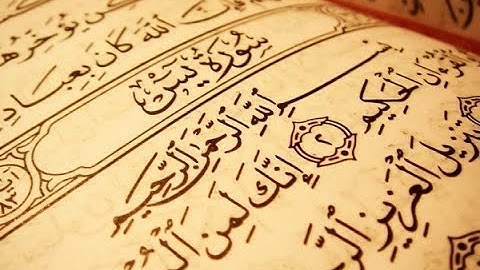 ٱللَّهَ كَانَ بِعِبَادِ
سُورَةُ يسٓ
بِسْمِ ٱللَّهِ ٱلرَّحْمَٰنِ ٱلرَّحِيمِ
ٱلْحَكِيمِ ٢ إِنَّكَ لَمِنَ ٱلْمُ
تَنزِيلَ ٱلْعَزِيزِ ٱلرَّ